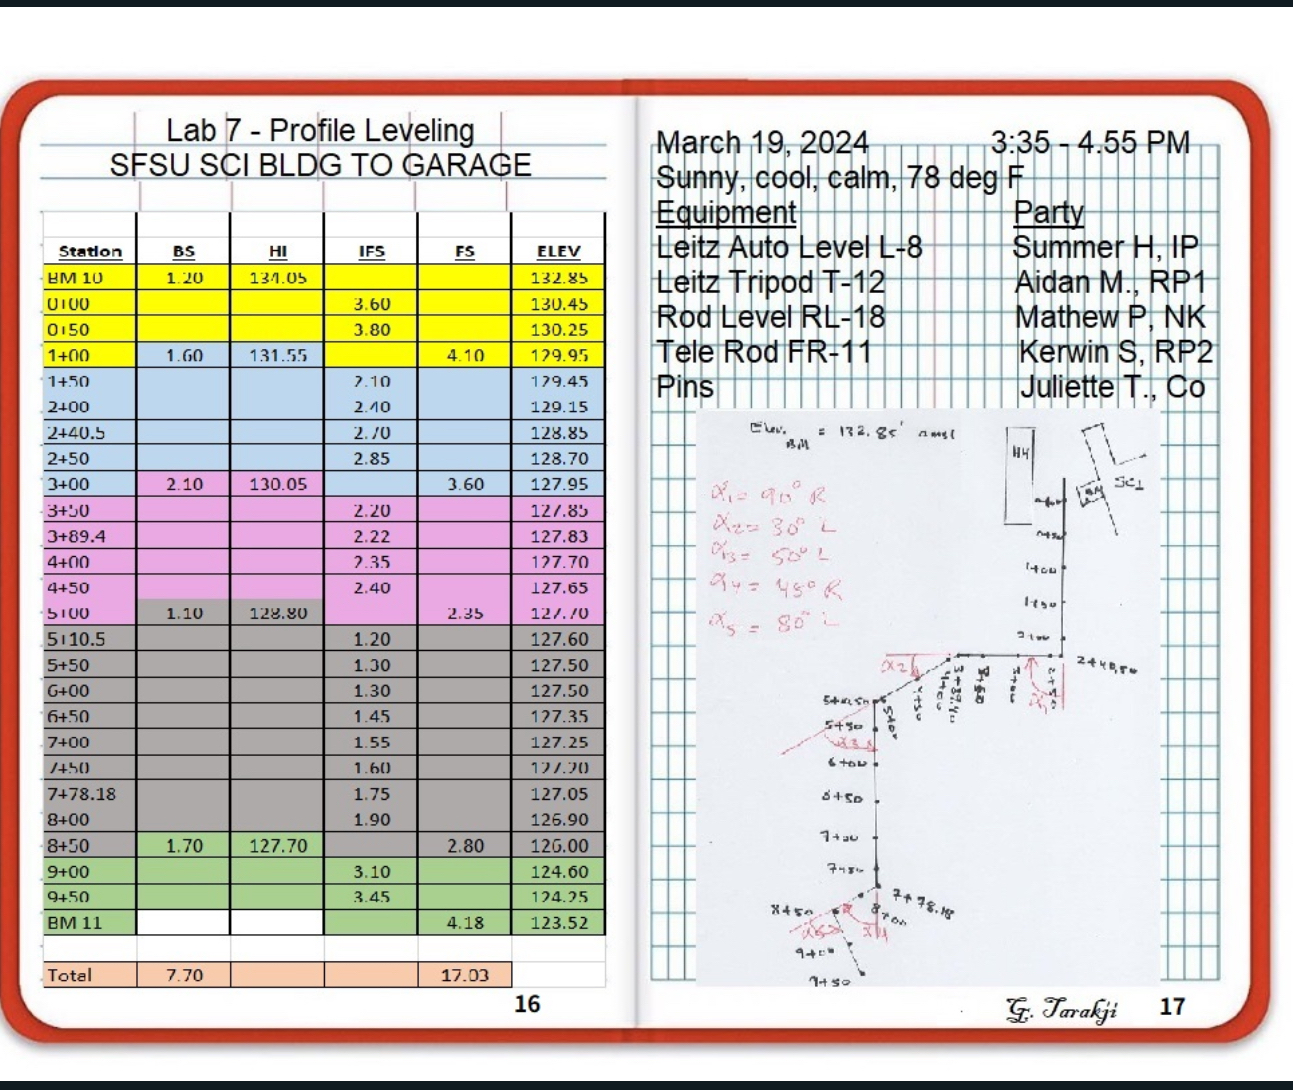 Lab 7 - Profile Leveling
SFSU SCI BLDG TO GARAGE
Station BS HI IFS FS ELEV
BM 10 1.20 134.05 132.85
0+00 3.60 130.45
0+50 3.80 130.25
1+00 1.60 131.55 4.10 129.95
1+50 2.10 129.45
2+00 2.40 129.15
2+40.5 2.70 128.85
2+50 2.85 128.70
3+00 2.10 130.05 3.60 127.95
3+50 2.20 127.85
3+89.4 2.22 127.83
4+00 2.35 127.70
4+50 2.40 127.65
5+00 1.10 128.80 2.35 127.70
5+10.5 1.20 127.60
5+50 1.30 127.50
6+00 1.30 127.50
6+50 1.45 127.35
7+00 1.55 127.25
7+50 1.60 127.20
7+78.18 1.75 127.05
8+00 1.90 126.90
8+50 1.70 127.70 2.80 126.00
9+00 3.10 124.60
9+50 3.45 124.25
BM 11 4.18 123.52
Total 7.70 17.03
16
March 19, 2024 3:35 - 4.55 PM
Sunny, cool, calm, 78 deg F
Equipment Party
Leitz Auto Level L-8 Summer H, IP
Leitz Tripod T-12 Aidan M., RP1
Rod Level RL-18 Mathew P, NK
Tele Rod FR-11 Kerwin S, RP2
Pins Juliette T., Co
Elev. BM = 132.85' amsl
HH
BM
SCI
α1 = 90° R
α2 = 30° L
α3 = 50° L
α4 = 45° R
α5 = 80° L
0+50
1+00
1+50
2+00
2+40.50
2+50
3+00
3+50
3+89.40
4+00
4+50
5+00
α1
α2
5+50
α3
6+00
6+50
7+00
7+50
7+78.18
8+00
8+50
α5
α4
9+00
9+50
G. Tarakji 17